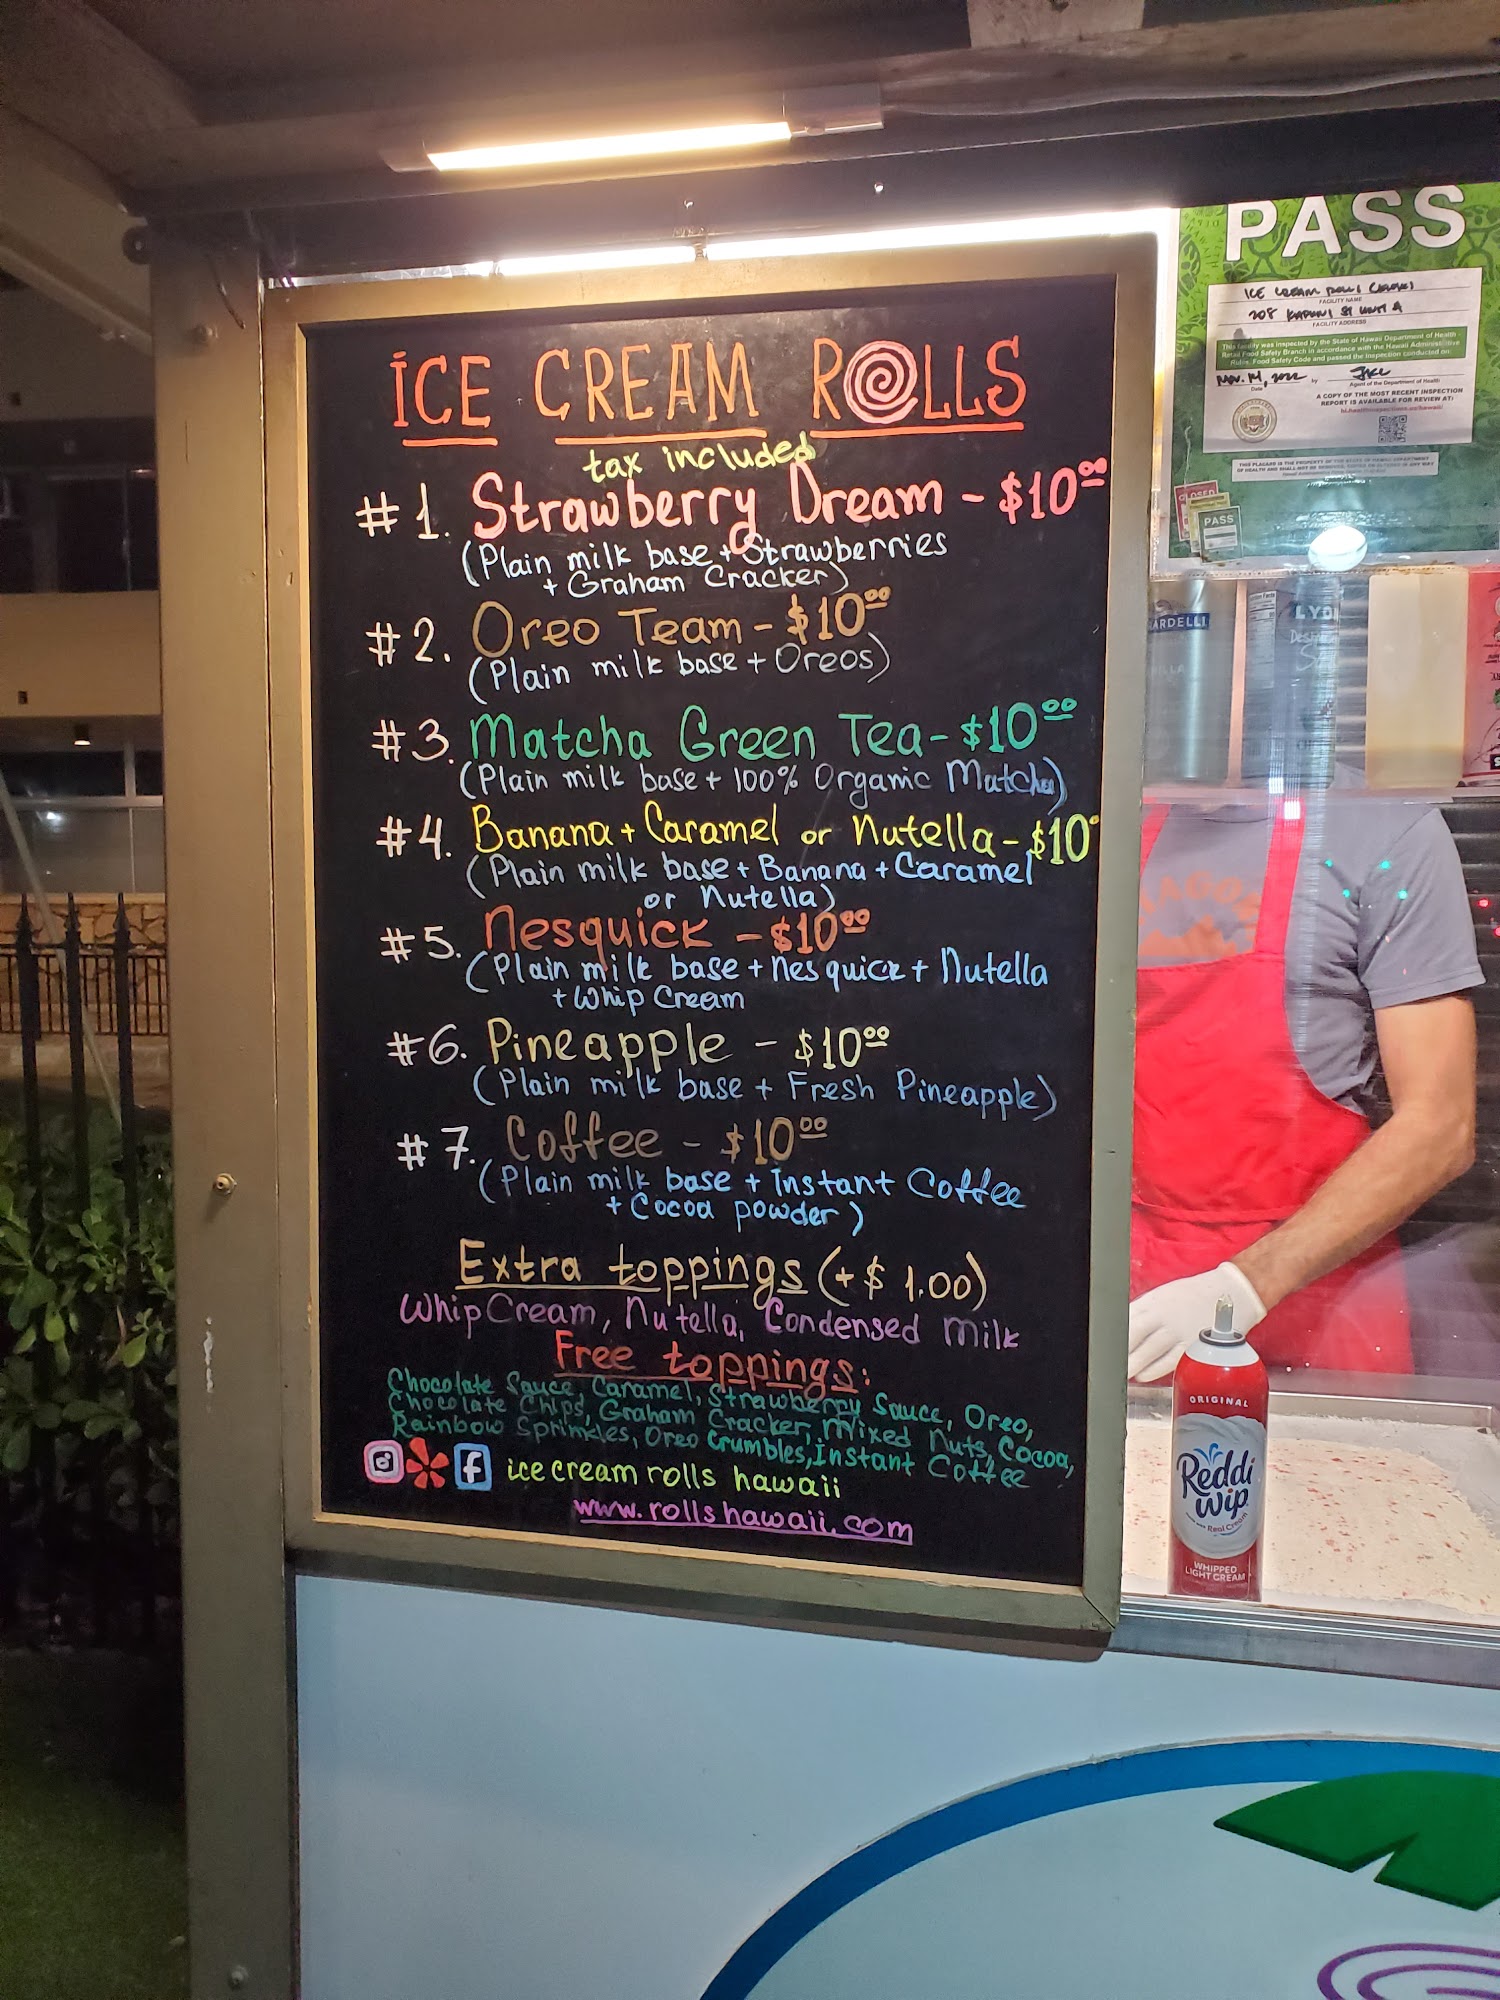 İCE CREAM ROLLS
tax included
#1. Strawberry Dream - $10⁰⁰
(Plain milk base + Strawberries
+ Graham Cracker)
#2. Oreo Team - $10⁰⁰
(Plain milk base + Oreos)
#3. Matcha Green Tea - $10⁰⁰
(Plain milk base + 100% Organic Matcha)
#4. Banana + Caramel or Nutella - $10⁰
(Plain milk base + Banana + Caramel
or Nutella)
#5. Nesquick - $10⁰⁰
(Plain milk base + Nesquick + Nutella
+ Whip Cream
#6. Pineapple - $10⁰⁰
(Plain milk base + Fresh Pineapple)
#7. Coffee - $10⁰⁰
(Plain milk base + Instant Coffee
+ Cocoa powder)
Extra toppings (+ $ 1.00)
Whip Cream, Nutella, Condensed Milk
Free toppings:
Chocolate Sauce, Caramel, Strawberry Sauce, Oreo,
Chocolate Chips, Graham Cracker, Mixed Nuts, Cocoa,
Rainbow Sprinkles, Oreo Crumbles, Instant Coffee
f ice cream rolls hawaii
www.rollshawaii.com
PASS
ICE CREAM ROLLS
FACILITY NAME
208 KAPUNI ST UNIT A
FACILITY ADDRESS
This facility was inspected by the State of Hawaii Department of Health -
Retail Food Safety Branch in accordance with the Hawaii Administrative
Rules, Food Safety Code and passed the inspection conducted on:
Nov. 14, 2022 by
Date Agent of the Department of Health
A COPY OF THE MOST RECENT INSPECTION
REPORT IS AVAILABLE FOR REVIEW AT:
CLOSED
PASS
ARDELLI
LYO
ORIGINAL
Reddi
wip
Real Cream
WHIPPED
LIGHT CREAM